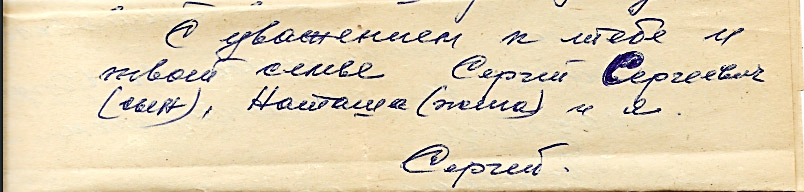 С уважением к тебе и
твоей семье Сергей Сергеевич
(сын), Наташа (жена) и я.
Сергей.